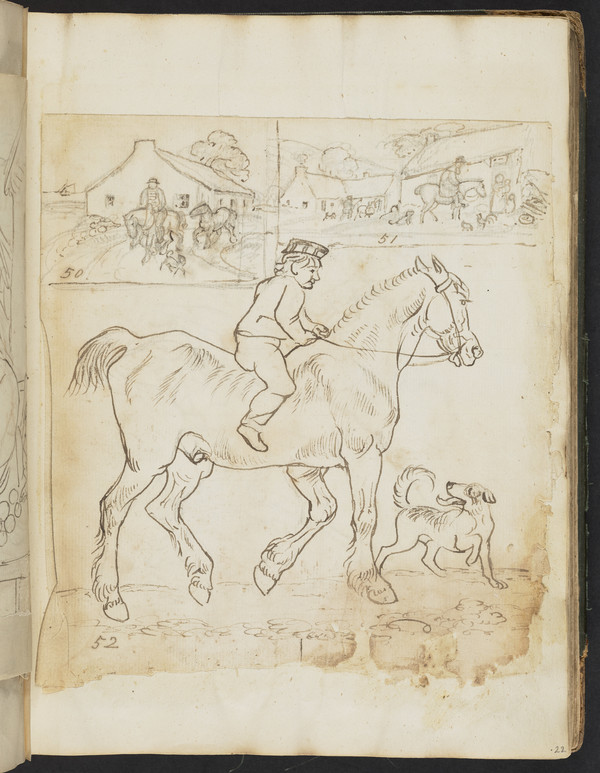 50
51
52
.22